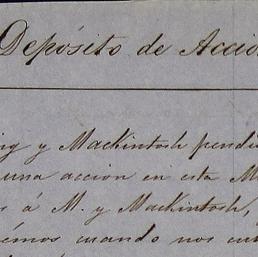 Depósito de Accio
y Mackintosh pendi
una accion en esta M
á M. y Mackintosh,
cuando nos